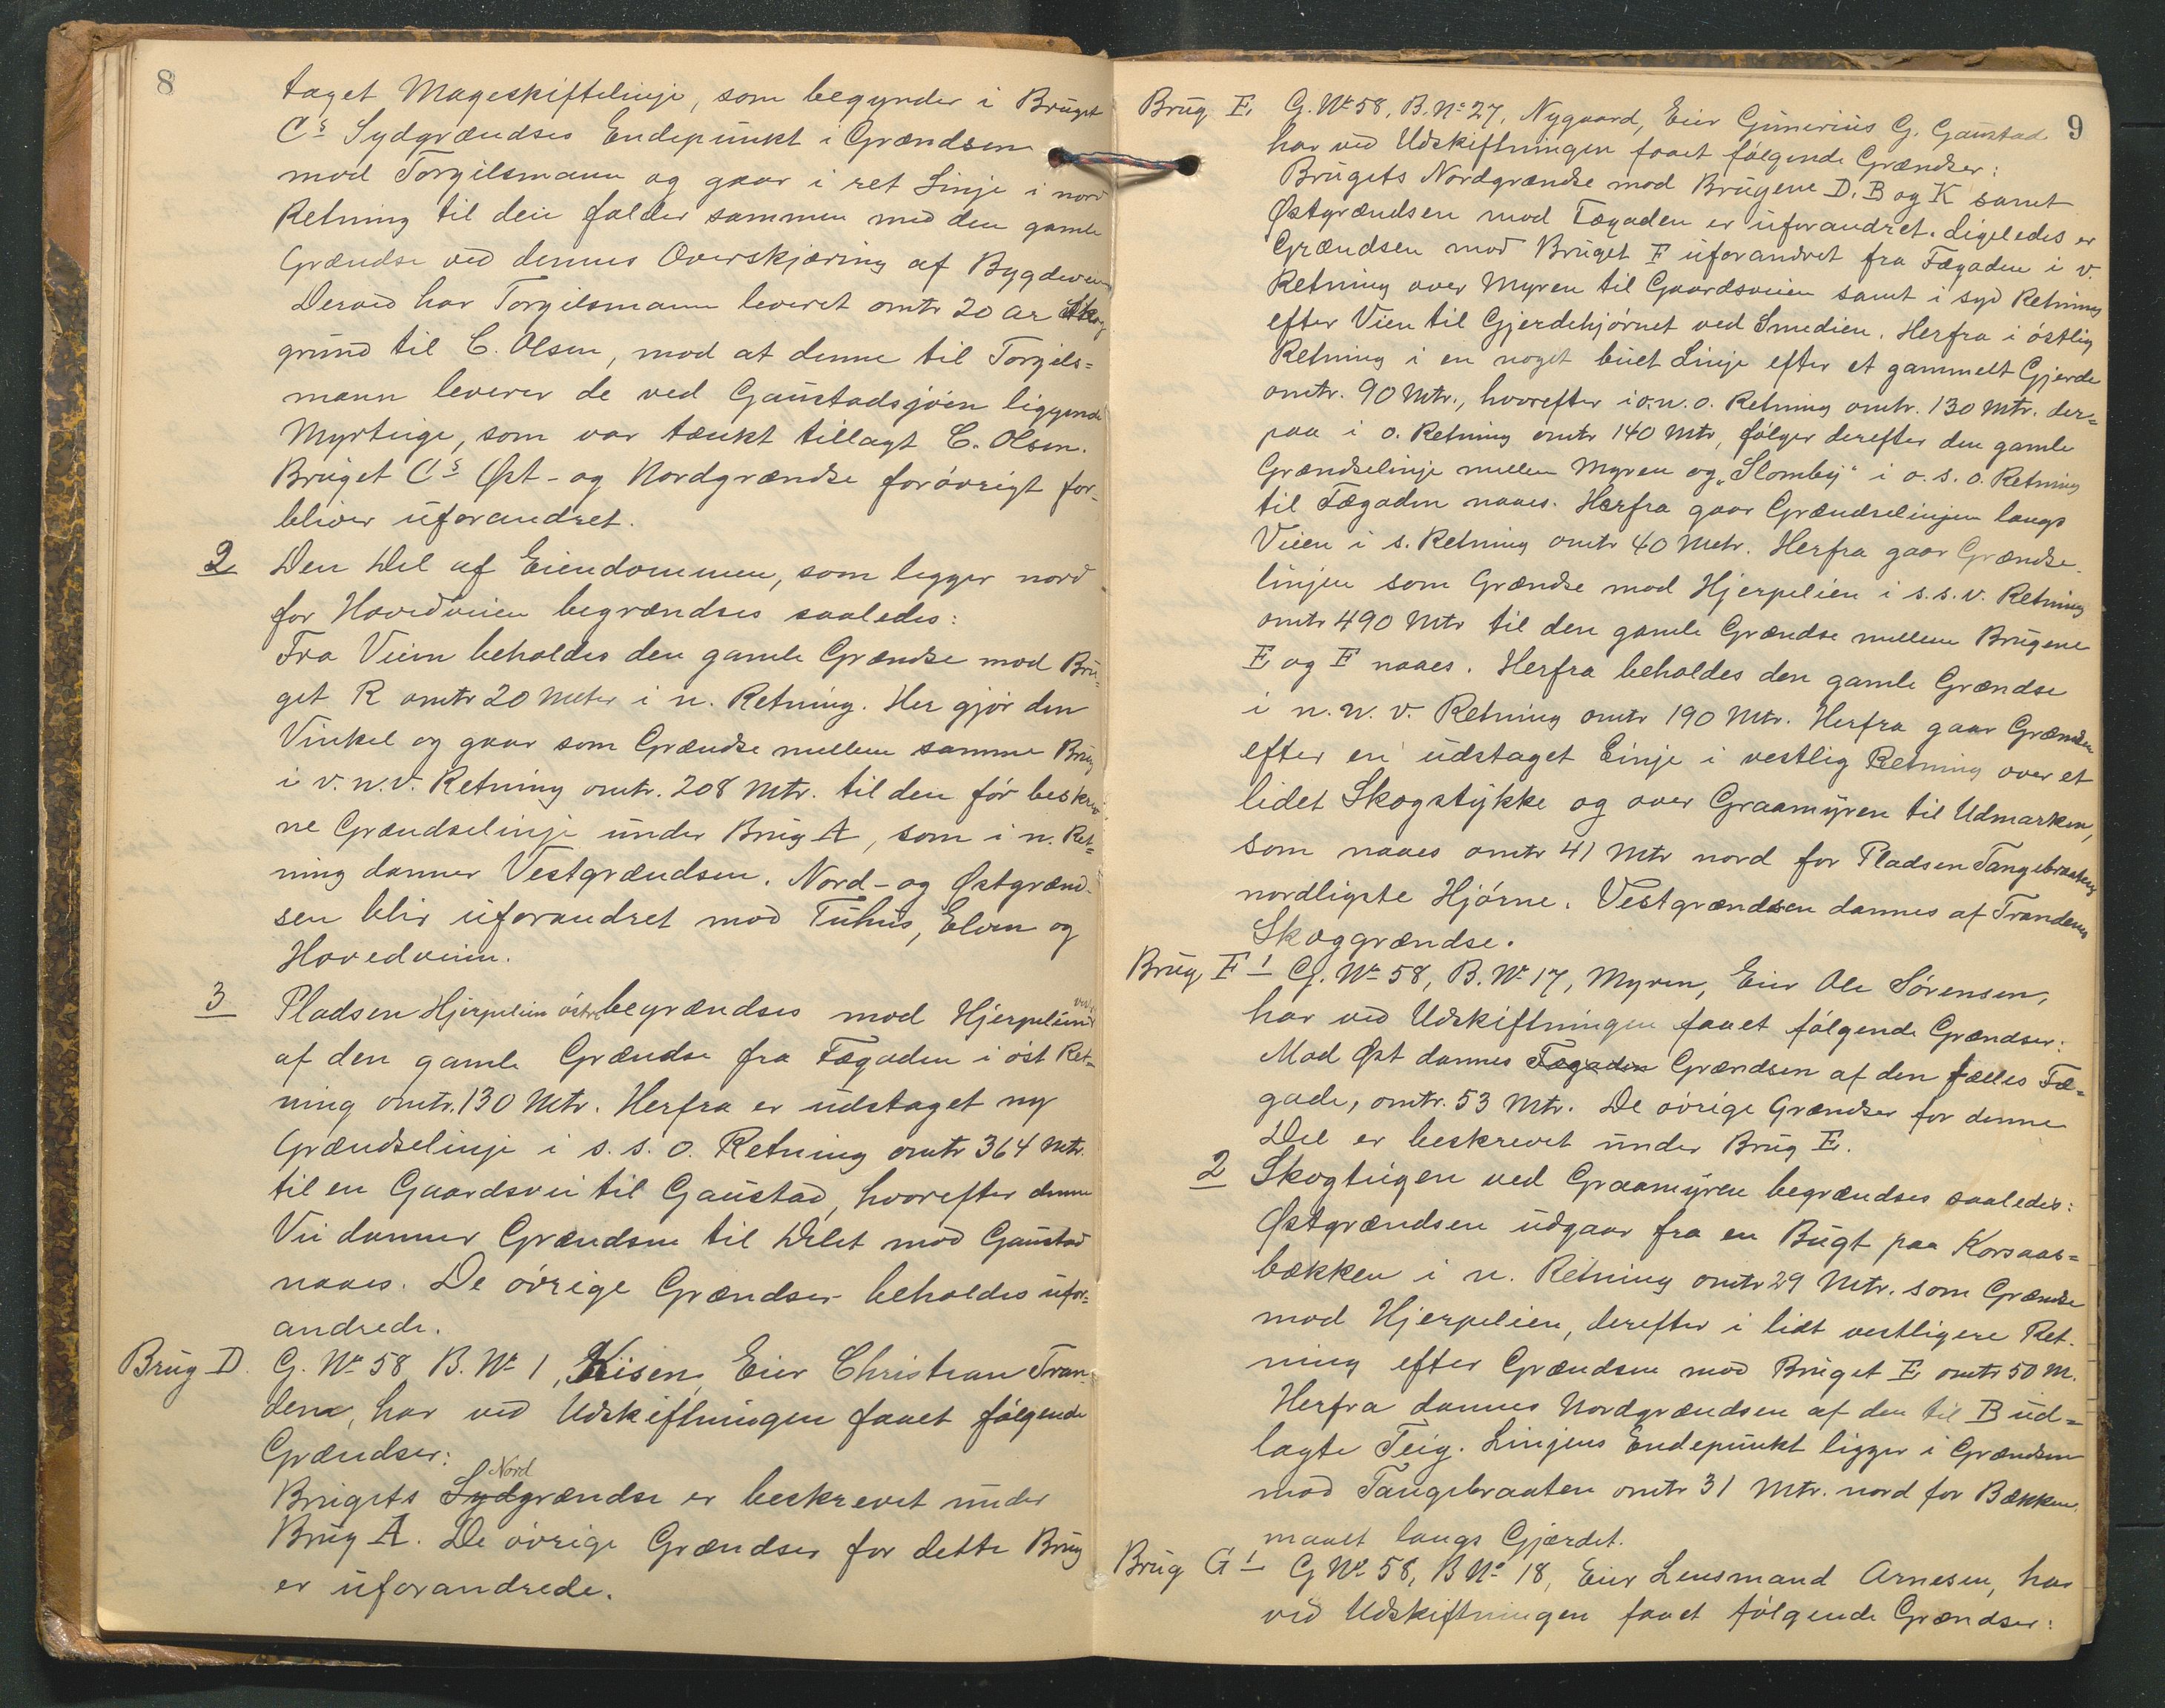 8
taget Mageskiftelinje, som begynder i Bruget
Cs Sydgrændses Endepunkt i Grændsen
mod Torgilsmann og gaar i ret Linje i nord
Retning til den falder sammen med den gamle
Grændse ved dennes Overskjæring af Bygdeveien
Derved har Torgilsmann leveret omtr 20 ar Skog
grund til C. Olsen, mod at denne til Torgils=
mann leverer de ved Gaustadsjøen liggende
Myrteige, som var tænkt tillagt C. Olsen.
Bruget Cs Øst- og Nordgrændse forøvrigt for-
bliver uforandret.
2 Den Del af Eiendommen, som ligger nord
for Hovedveien begrændses saaledes:
Fra Veien beholdes den gamle Grændse mod Bru=
get R omtr 20 Meter i n. Retning. Her gjør den
Vinkel og gaar som Grændse mellem samme Brug
i v.n.v. Retning omtr. 208 Mtr. til den før beskrev
ne Grændselinje under Brug A, som i n. Ret=
ning danner Vestgrændsen. Nord- og Østgrænd-
sen blir uforandret mod Tuhus, Elven og
Hovedveien.
3 Pladsen Hjerpelien østre begrændses mod Hjerpelien
af den gamle Grændse fra Fægaden i øst Ret-
ning omtr. 130 Mtr. Herfra er udstaget ny
Grændselinje i s.s.o. Retning omtr 364 Mtr.
til en Gaardsvei til Gaustad, hvorefter denne
Vei danner Grændsen til Delet mod Gaustad
naaes. De øvrige Grændser beholdes ufor=
andrede.
Brug D. G. No 58 B. No 1, Kiisen, Eier Christian Tran-
den, har ved Udskiftningen faaet følgende
Grændser:
Nord
Brugets Sydgrændse er beskrevet under
Brug A. De øvrige Grændser for dette Brug
er uforandrede.
9
Brug E. G. No 58, B. No 27, Nygaard, Eier Gunerius G. Gaustad
har ved Udskiftningen faaet følgende Grændser:
Brugets Nordgrændse mod Brugene D. B og K samt
Østgrændsen mod Fægaden er uforandret. Ligeledes er
Grændsen mod Bruget F uforandret fra Fægaden i v.
Retning over Myren til Gaardsveien samt i syd Retning
efter Veien til Gjerdehjørnet ved Smedien. Herfra i østlig
Retning i en noget buet Linje efter et gammelt Gjerde
omtr. 90 Mtr., hvorefter i o.n.o. Retning omtr. 130 Mtr. der=
paa i o. Retning omtr 140 Mtr, følger derefter den gamle
Grændselinje mellem Myren og „Slomby" i o.s.o. Retning
til Fægaden naaes. Herfra gaar Grændselinjen langs
Veien i s. Retning omtr 40 Metr. Herfra gaar Grændse-
linjen som Grændse mod Hjerpelien i s.s.v. Retning
omtr 490 Mtr til den gamle Grændse mellem Brugene
E og F naaes. Herfra beholdes den gamle Grændse
i n.n.v. Retning omtr 190 Mtr. Herfra gaar Grændsen
efter en udstaget Linje i vestlig Retning over et
lidet Skogstykke og over Graamyren til Udmarken,
som naaes omtr 41 Mtr nord for Pladsen Tangebraatens
nordligste Hjørne. Vestgrændsen dannes af Trandens
Skoggrændse.
Brug F 1 G. No 58, B. No 17, Myren, Eier Ole Sørensen,
har ved Udskiftningen faaet følgende Grændser:
Mod Øst dannes Fægaden Grændsen af den fælles Fæ=
gade, omtr. 53 Mtr. De øvrige Grændser for denne
Del er beskrevet under Brug E.
2 Skogteigen ved Graamyren begrændses saaledes:
Østgrændsen udgaar fra en Bugt paa Korsaas=
bækken i n. Retning omtr 29 Mtr. som Grændse
mod Hjerpelien, derefter i lidt vestligere Ret-
ning efter Grændsen mod Bruget E omtr 50 M.
Herfra dannes Nordgrændsen af den til B ud=
lagte Teig. Linjens Endepunkt ligger i Grændsen
mod Tangebraaten omtr 31 Mtr. nord for Bækken
maalt langs Gjærdet.
Brug G 1 G No 58, B No 18, Eier Lensmand Arnesen, har
ved Udskiftningen faaet følgende Grændser: